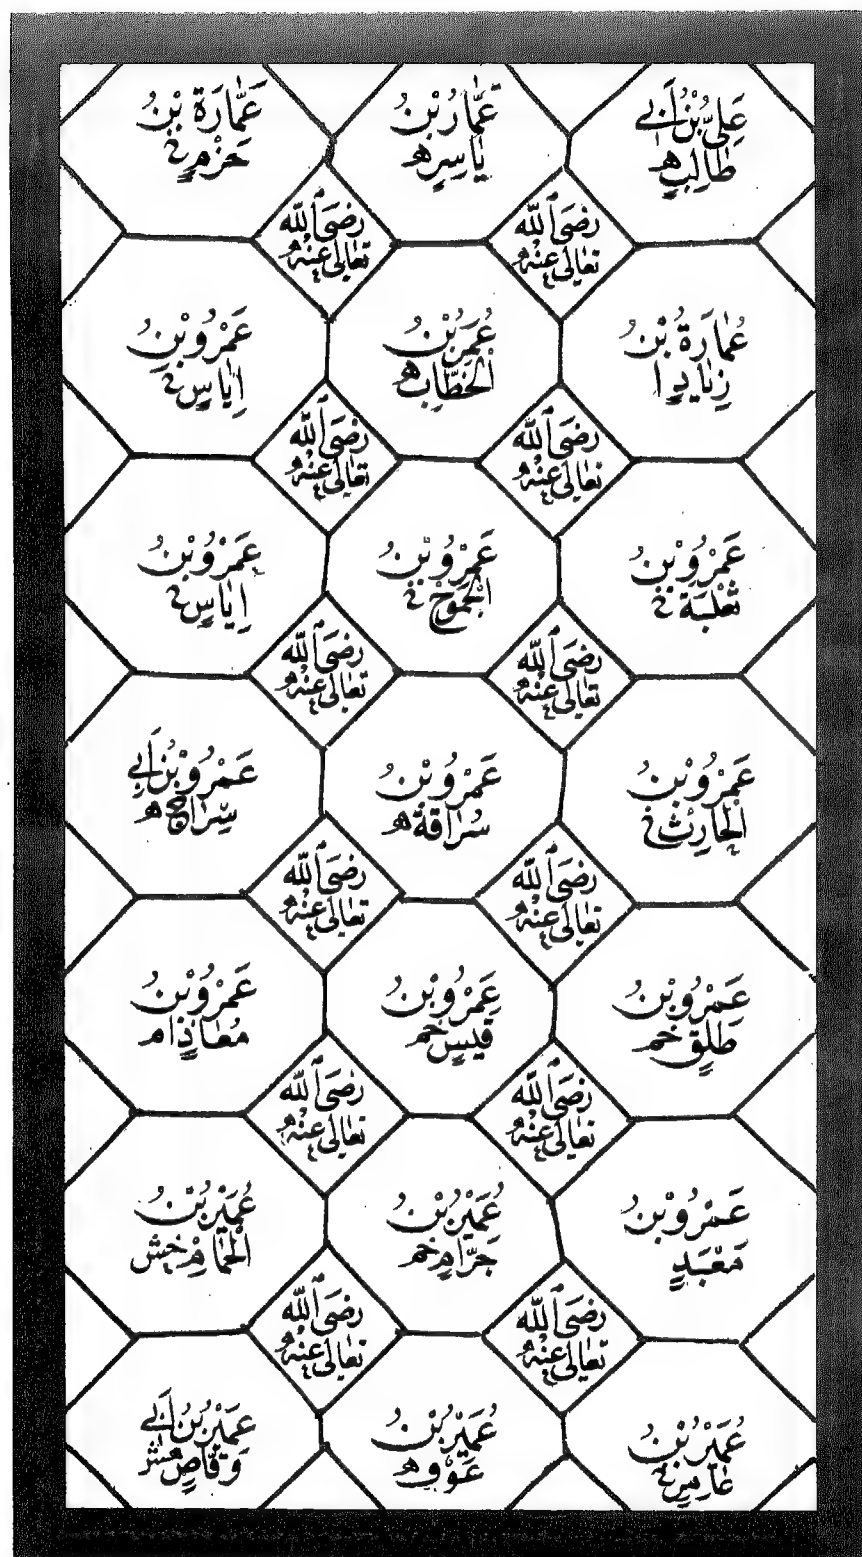 عَلِيُّ بْنُ أَبِي
طَالِبٍ ھ
عَمَّارُ بْنُ
يَاسِرٍ ھ
عَمَّارَةُ بْنُ
حَزْمٍ خ
رَضِيَ اللّٰه
تَعَالٰى عَنْهُ
رَضِيَ اللّٰه
تَعَالٰى عَنْهُ
عُمَارَةُ بْنُ
زِيَادٍ ا
عُمَرُ بْنُ
الْخَطَّابِ ھ
عَمْرُو بْنُ
اِيَاسٍ خ
رَضِيَ اللّٰه
تَعَالٰى عَنْهُ
رَضِيَ اللّٰه
تَعَالٰى عَنْهُ
عَمْرُو بْنُ
ثَعْلَبَةَ خ
عَمْرُو بْنُ
الْجَمُوْحِ خ
عَمْرُو بْنُ
اِيَاسٍ خ
رَضِيَ اللّٰه
تَعَالٰى عَنْهُ
رَضِيَ اللّٰه
تَعَالٰى عَنْهُ
عَمْرُو بْنُ
الْحَارِثِ خ
عَمْرُو بْنُ
سُرَاقَةَ ھ
عَمْرُو بْنُ أَبِي
سِرَاجٍ ھ
رَضِيَ اللّٰه
تَعَالٰى عَنْهُ
رَضِيَ اللّٰه
تَعَالٰى عَنْهُ
عَمْرُو بْنُ
طَلْقٍ خم
عَمْرُو بْنُ
قَيْسٍ خم
عَمْرُو بْنُ
مُعَاذٍ ام
رَضِيَ اللّٰه
تَعَالٰى عَنْهُ
رَضِيَ اللّٰه
تَعَالٰى عَنْهُ
عَمْرُو بْنُ
مَعْبَدٍ
عُمَيْرُ بْنُ
حَرَامٍ خم
عُمَيْرُ بْنُ
الْحُمَامِ خش
رَضِيَ اللّٰه
تَعَالٰى عَنْهُ
رَضِيَ اللّٰه
تَعَالٰى عَنْهُ
عُمَيْرُ بْنُ
عَامِرٍ خ
عُمَيْرُ بْنُ
عَوْفٍ ھ
عُمَيْرُ بْنُ أَبِي
وَقَّاصٍ